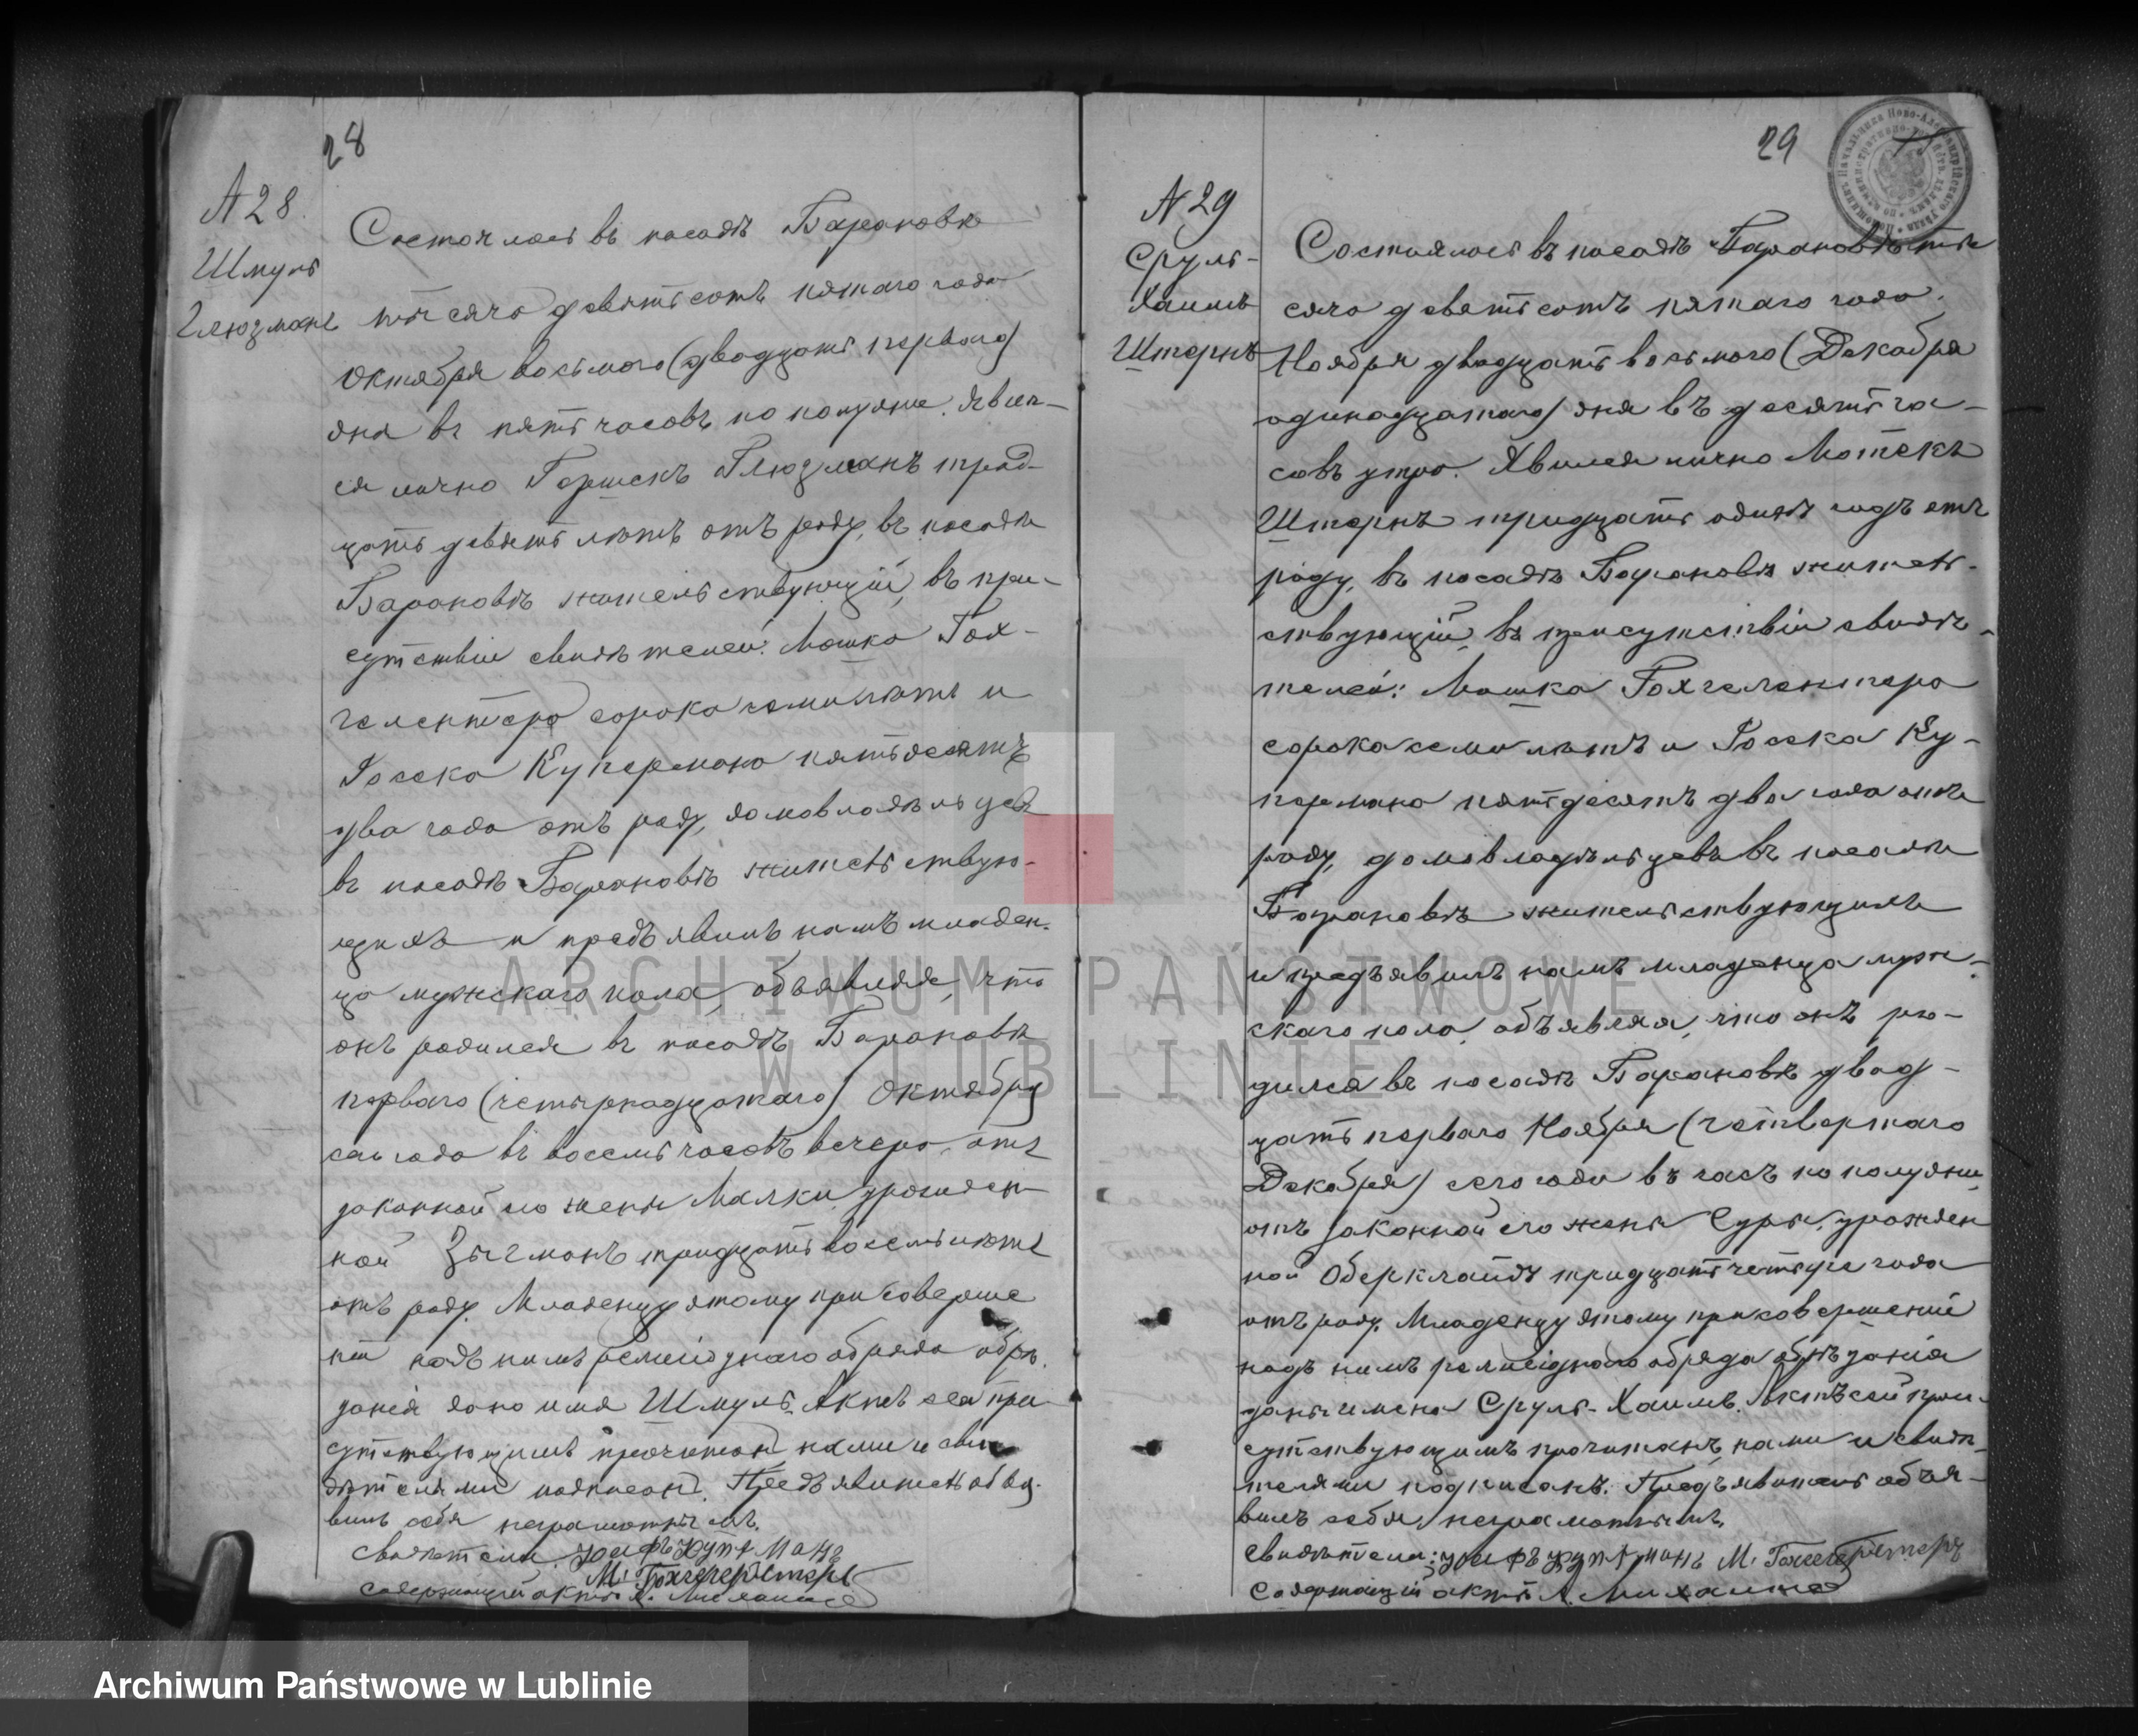 28
А 28.
Шмуль
Глюзманъ
Состоялось въ посадѣ Барановѣ
тысяча девятьсотъ пятаго года
Октября восьмого (двадцать перваго)
дня въ пять часовъ по полудне. Явил-
ся лично Гершекъ Глюзманъ трид-
цать девять лѣтъ отъ роду, въ посадѣ
Барановѣ жительствующій, въ при-
сутствіи свидѣтелей: Мошка Гох-
гелентера сорока семи лѣтъ и
Іосека Купермана пятьдесятъ
два года отъ роду, домовладѣльцевъ
въ посадѣ Барановѣ жительствую-
щихъ и предъявилъ намъ младен-
ца мужскаго пола, объявляя, что
онъ родился въ посадѣ Барановѣ
перваго (четырнадцатаго) Октября
сего года въ восемь часовъ вечера, отъ
законной его жены Малки, урожден-
ной Зыгманъ тридцать восемь лѣтъ
отъ роду. Младенцу этому при соверше
ніи надъ нимъ религіознаго обряда обрѣ.
занія дано имя Шмуль. Актъ сей при
сутствующимъ прочитанъ, нами и сви
дѣтелями подписанъ. Предъявитель объя.
вилъ себя неграмотнымъ.
Свидѣтели: Іосифъ Куперманъ
М. Гохгелерентеръ
Содержащій акты
29
N 29
Сруль-
Хаимъ
Штернъ
Состоялось въ посадѣ Барановѣ ты
сяча девятьсотъ пятаго года.
Ноября двадцать восьмого (Декабря
одинадцатаго) дня въ десять ча-
совъ утра. Явился лично Мотекъ
Штернъ тридцать одинъ годъ отъ
роду, въ посадѣ Барановѣ житель-
ствующій, въ присутствіи свидѣ-
телей: Мошка Гохгелентера
сорока семи лѣтъ и Іосека Ку-
пермана пятьдесятъ два года отъ
роду, домовладѣльцевъ въ посадѣ
Барановѣ жительствующихъ
и предъявилъ намъ младенца муж-
скаго пола, объявляя, что онъ ро-
дился въ посадѣ Барановѣ двад-
цать перваго Ноября (четвертаго
Декабря) сего года въ часъ по полудни,
отъ законной его жены Суры, урожден
ной Оберклайдъ тридцать четыре года
отъ роду. Младенцу этому при совершеніи
надъ нимъ религіознаго обряда обрѣзанія
даны имена Сруль-Хаимъ. Актъ сей при-
сутствующимъ прочитанъ, нами и свидѣ-
телями подписанъ. Предъявитель объя-
вилъ себя неграмотнымъ.
Свидѣтели: Іосифъ Куперманъ М. Гохгелерентеръ
Содержащій акты
ARCHIWUM PAŃSTWOWE
W LUBLINIE
Archiwum Państwowe w Lublinie